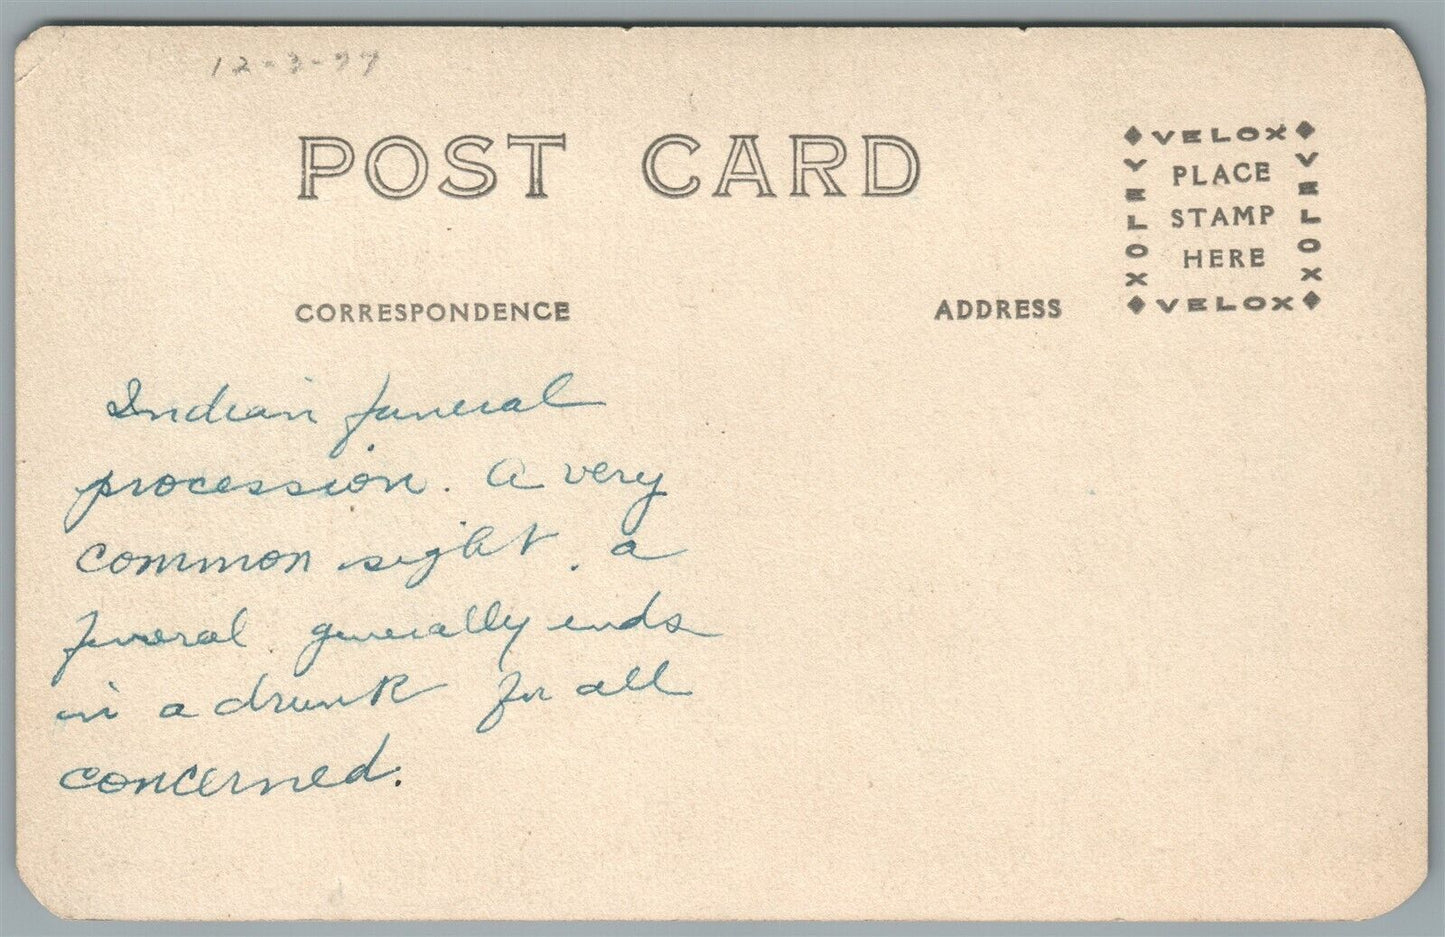 12-3-77
POST CARD
VELOX
VELOX
PLACE
STAMP
HERE
VELOX
VELOX
CORRESPONDENCE
ADDRESS
Indian funeral
procession. A very
common sight. a
funeral generally ends
in a drunk for all
concerned.